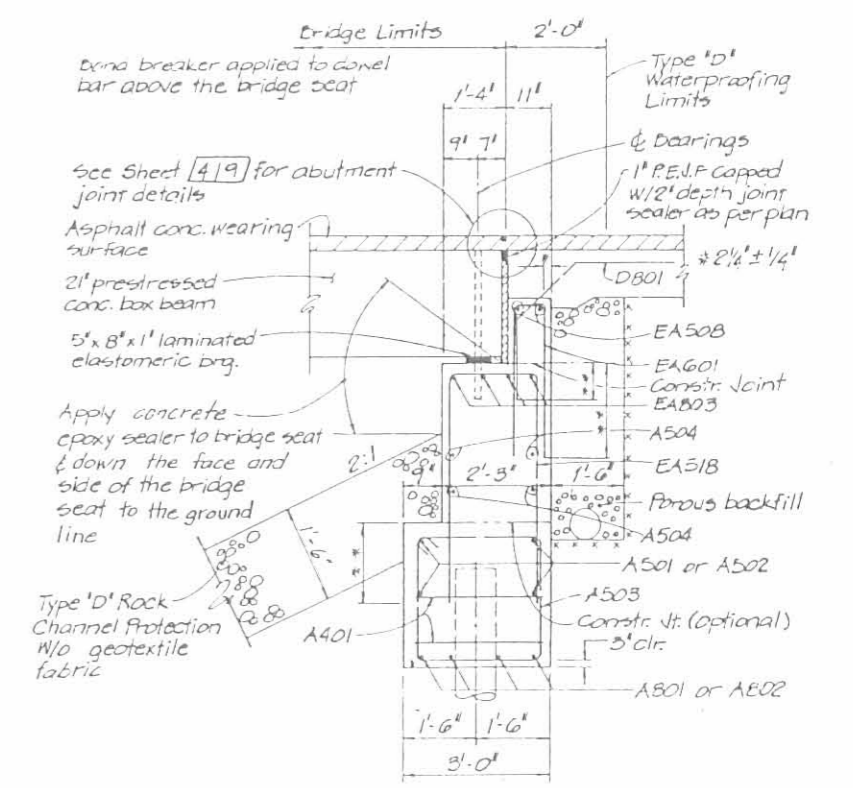 Bridge Limits
2'-0"
breaker applied to dowel
bar above the bridge seat
Type "D"
Waterproofing
Limits
1'-4"
11"
9" 7"
℄ Bearings
See Sheet 4/9 for abutment
joint details
1" P.E.J.F. Capped
W/2" depth joint
sealer as per plan
Asphalt conc. wearing
surface
* 2¼" ± ¼"
D801
21" prestressed
conc. box beam
EA508
5" x 8" x 1" laminated
elastomeric brg.
EA601
Constr. Joint
EA803
Apply concrete
epoxy sealer to bridge seat
& down the face and
side of the bridge
seat to the ground
line
A504
2:1
9"
2'-3"
EA518
1'-6"
Porous backfill
1'-6"
A504
A501 or A502
Type "D" Rock
Channel Protection
W/O geotextile
fabric
A503
A401
Constr. Jt. (Optional)
3" clr.
A801 or A802
1'-6"
1'-6"
3'-0"